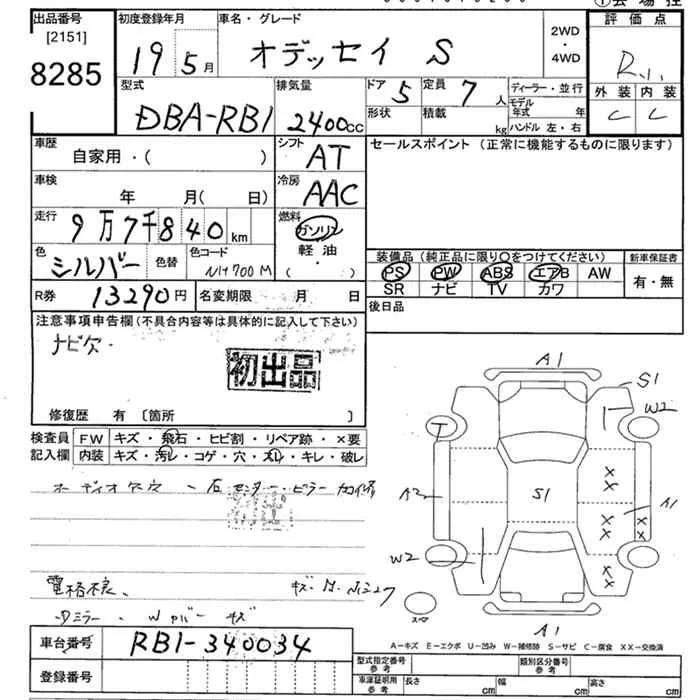 出品番号 初度登録年月 車名・グレード 評価点
[2151] 2WD・4WD
8285 19 5月 オデッセイ S R.1.
型式 排気量 ドア 定員 ディーラー・並行 外装 内装
DBA-RB1 2400cc 5 7人 モデル年式 年 C C
形状 積載 kg ハンドル 左・右
車歴 自家用・( ) シフト AT セールスポイント (正常に機能するものに限ります)
車検 年 月( 日) 冷房 AAC
走行 9万7千840km 燃料 ガソリン
軽油
( ・ )
色 シルバー 色替 色コード NH700M 装備品 (純正品に限り○をつけてください) 新車保証書
PS PW ABS エアB AW 有・無
SR ナビ TV カワ
R券 13290円 名変期限 月 日 後日品
注意事項申告欄(不具合内容等は具体的に記入して下さい)
ナビ欠
初出品
修復歴 有〔箇所 〕
検査員 FW キズ・飛石・ヒビ割・リペア跡・×要
記入欄 内装 キズ・汚レ・コゲ・穴・スレ・キレ・破レ
A1
S1
W2
T
A2 S1 A1
W2
スペア
A1
電格不良、
Wカバー キズ
車台番号 RB1-340034
登録番号
A-キズ E-エクボ U-凹み W-補修跡 S-サビ C-腐食 XX-交換済
型式指定番号 参考 類別区分番号 参考
車庫証明用 参考 長さ cm 幅 cm 高さ cm